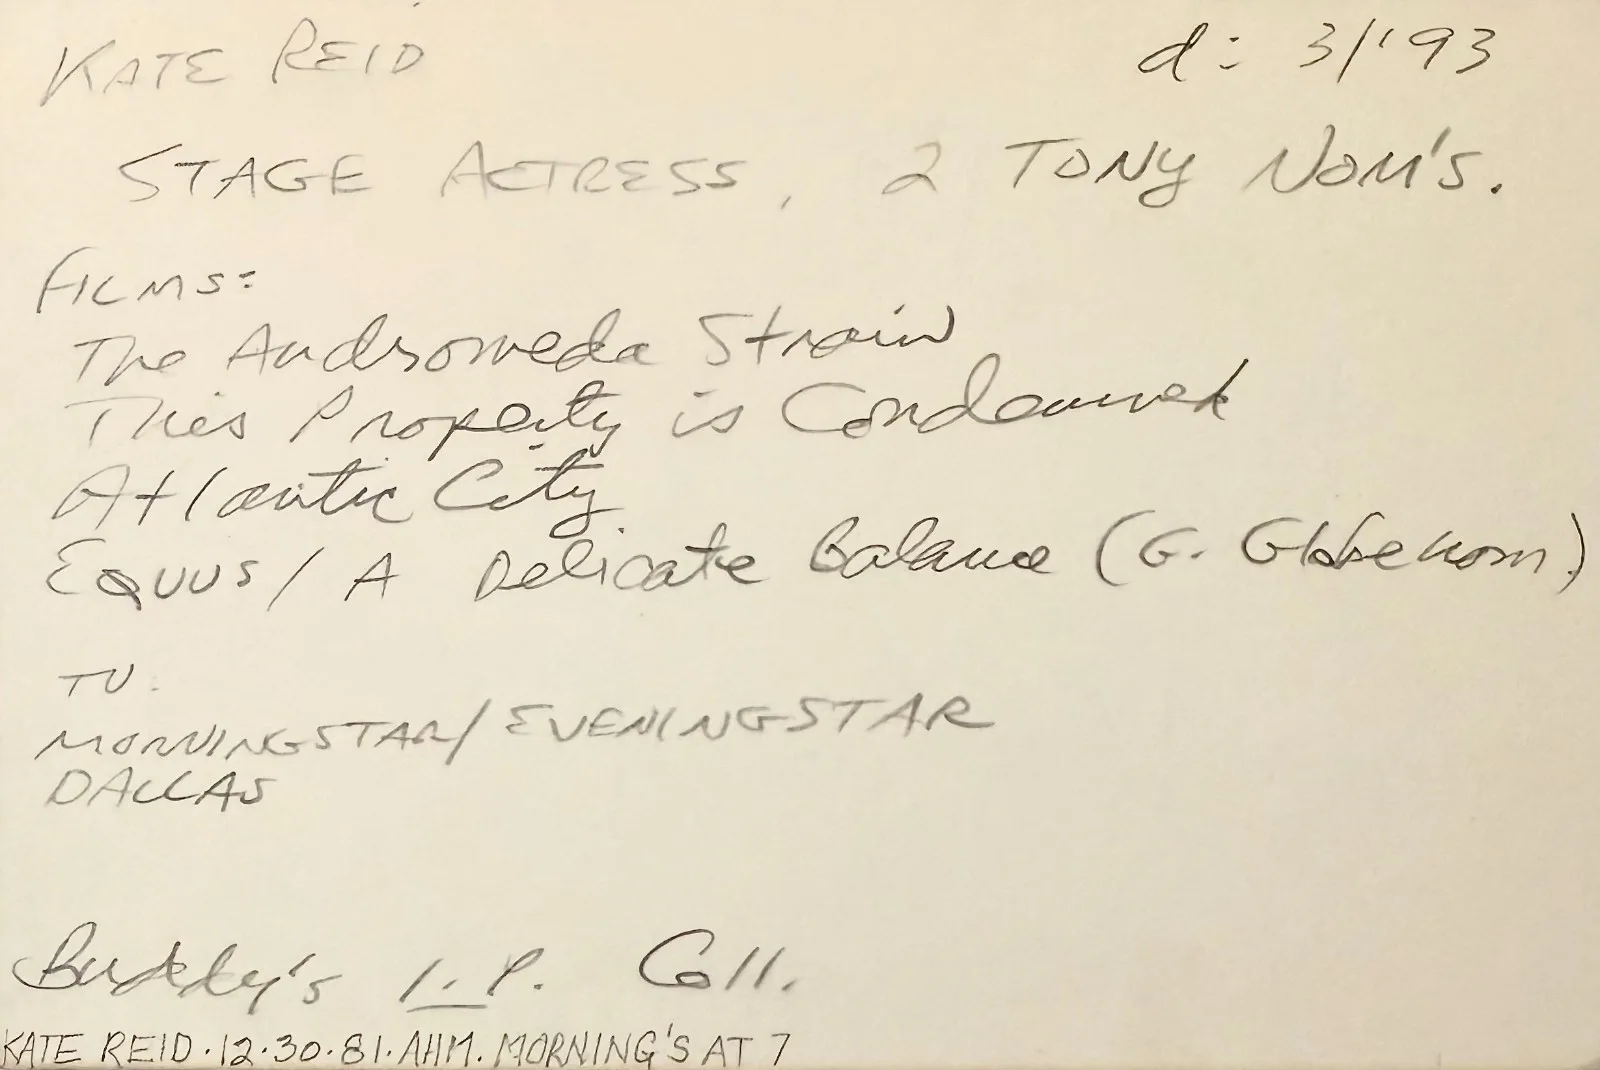 KATE REID d: 3/'93
STAGE ACTRESS, 2 TONY NOM'S.
FILMS:
The Andromeda Strain
This Property is Condemned
Atlantic City
EQUUS / A Delicate Balance (G. Globe nom.)
TV.
MORNINGSTAR/EVENINGSTAR
DALLAS
Buddy's I.P. Coll.
KATE REID·12·30·81·AHM. MORNING'S AT 7